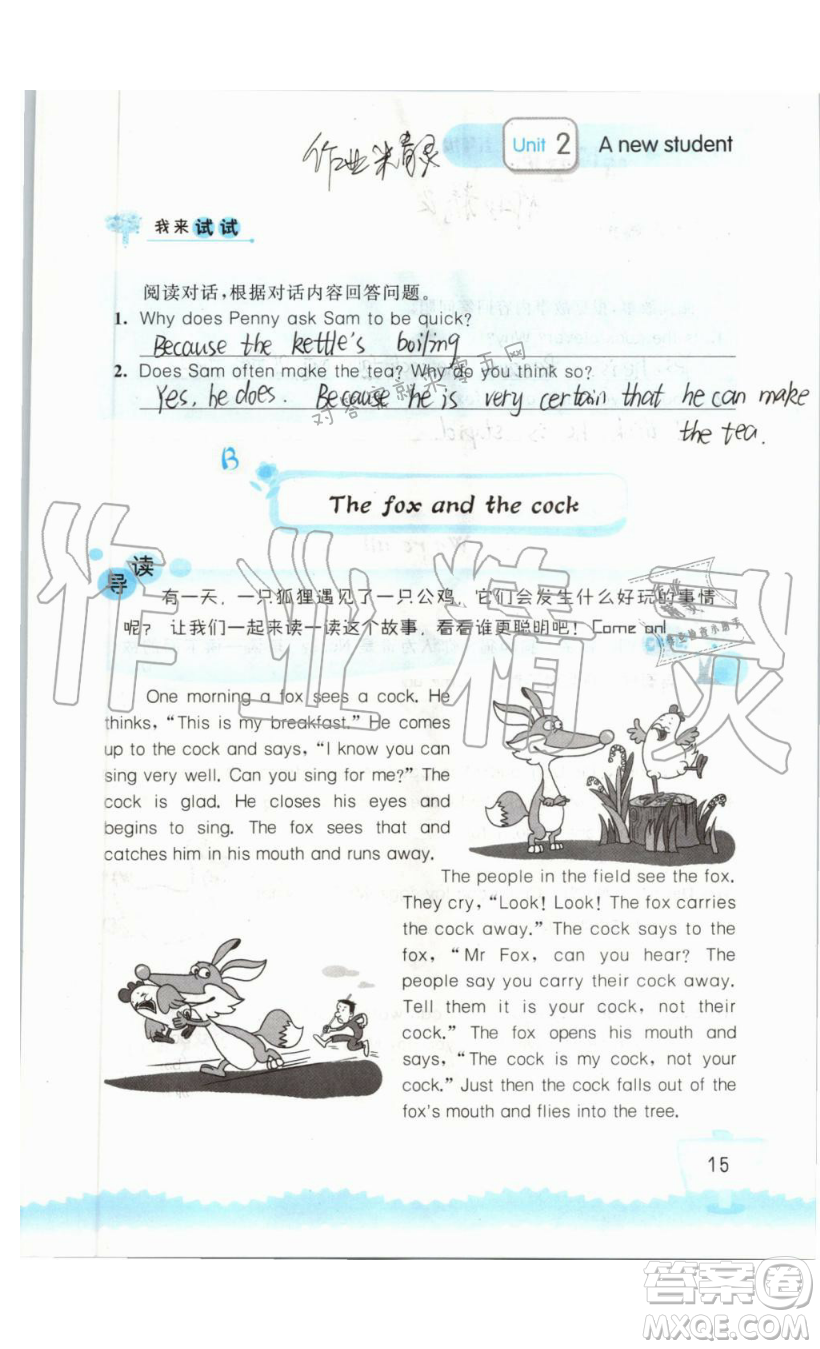 作业精灵
Unit 2 A new student
我来试试
阅读对话,根据对话内容回答问题。
1. Why does Penny ask Sam to be quick?
Because the kettle's boiling
2. Does Sam often make the tea? Why do you think so?
Yes, he does. Because he is very certain that he can make
the tea.
对答案就来零五网
B
The fox and the cock
导读
有一天,一只狐狸遇见了一只公鸡,它们会发生什么好玩的事情
呢?让我们一起来读一读这个故事,看看谁更聪明吧!Come on!
作业精灵
One morning a fox sees a cock. He
thinks, “This is my breakfast.” He comes
up to the cock and says, “I know you can
sing very well. Can you sing for me?” The
cock is glad. He closes his eyes and
begins to sing. The fox sees that and
catches him in his mouth and runs away.
The people in the field see the fox.
They cry, “Look! Look! The fox carries
the cock away.” The cock says to the
fox, “Mr Fox, can you hear? The
people say you carry their cock away.
Tell them it is your cock, not their
cock.” The fox opens his mouth and
says, “The cock is my cock, not your
cock.” Just then the cock falls out of the
fox's mouth and flies into the tree.
15
答案卷
MXQE.COM